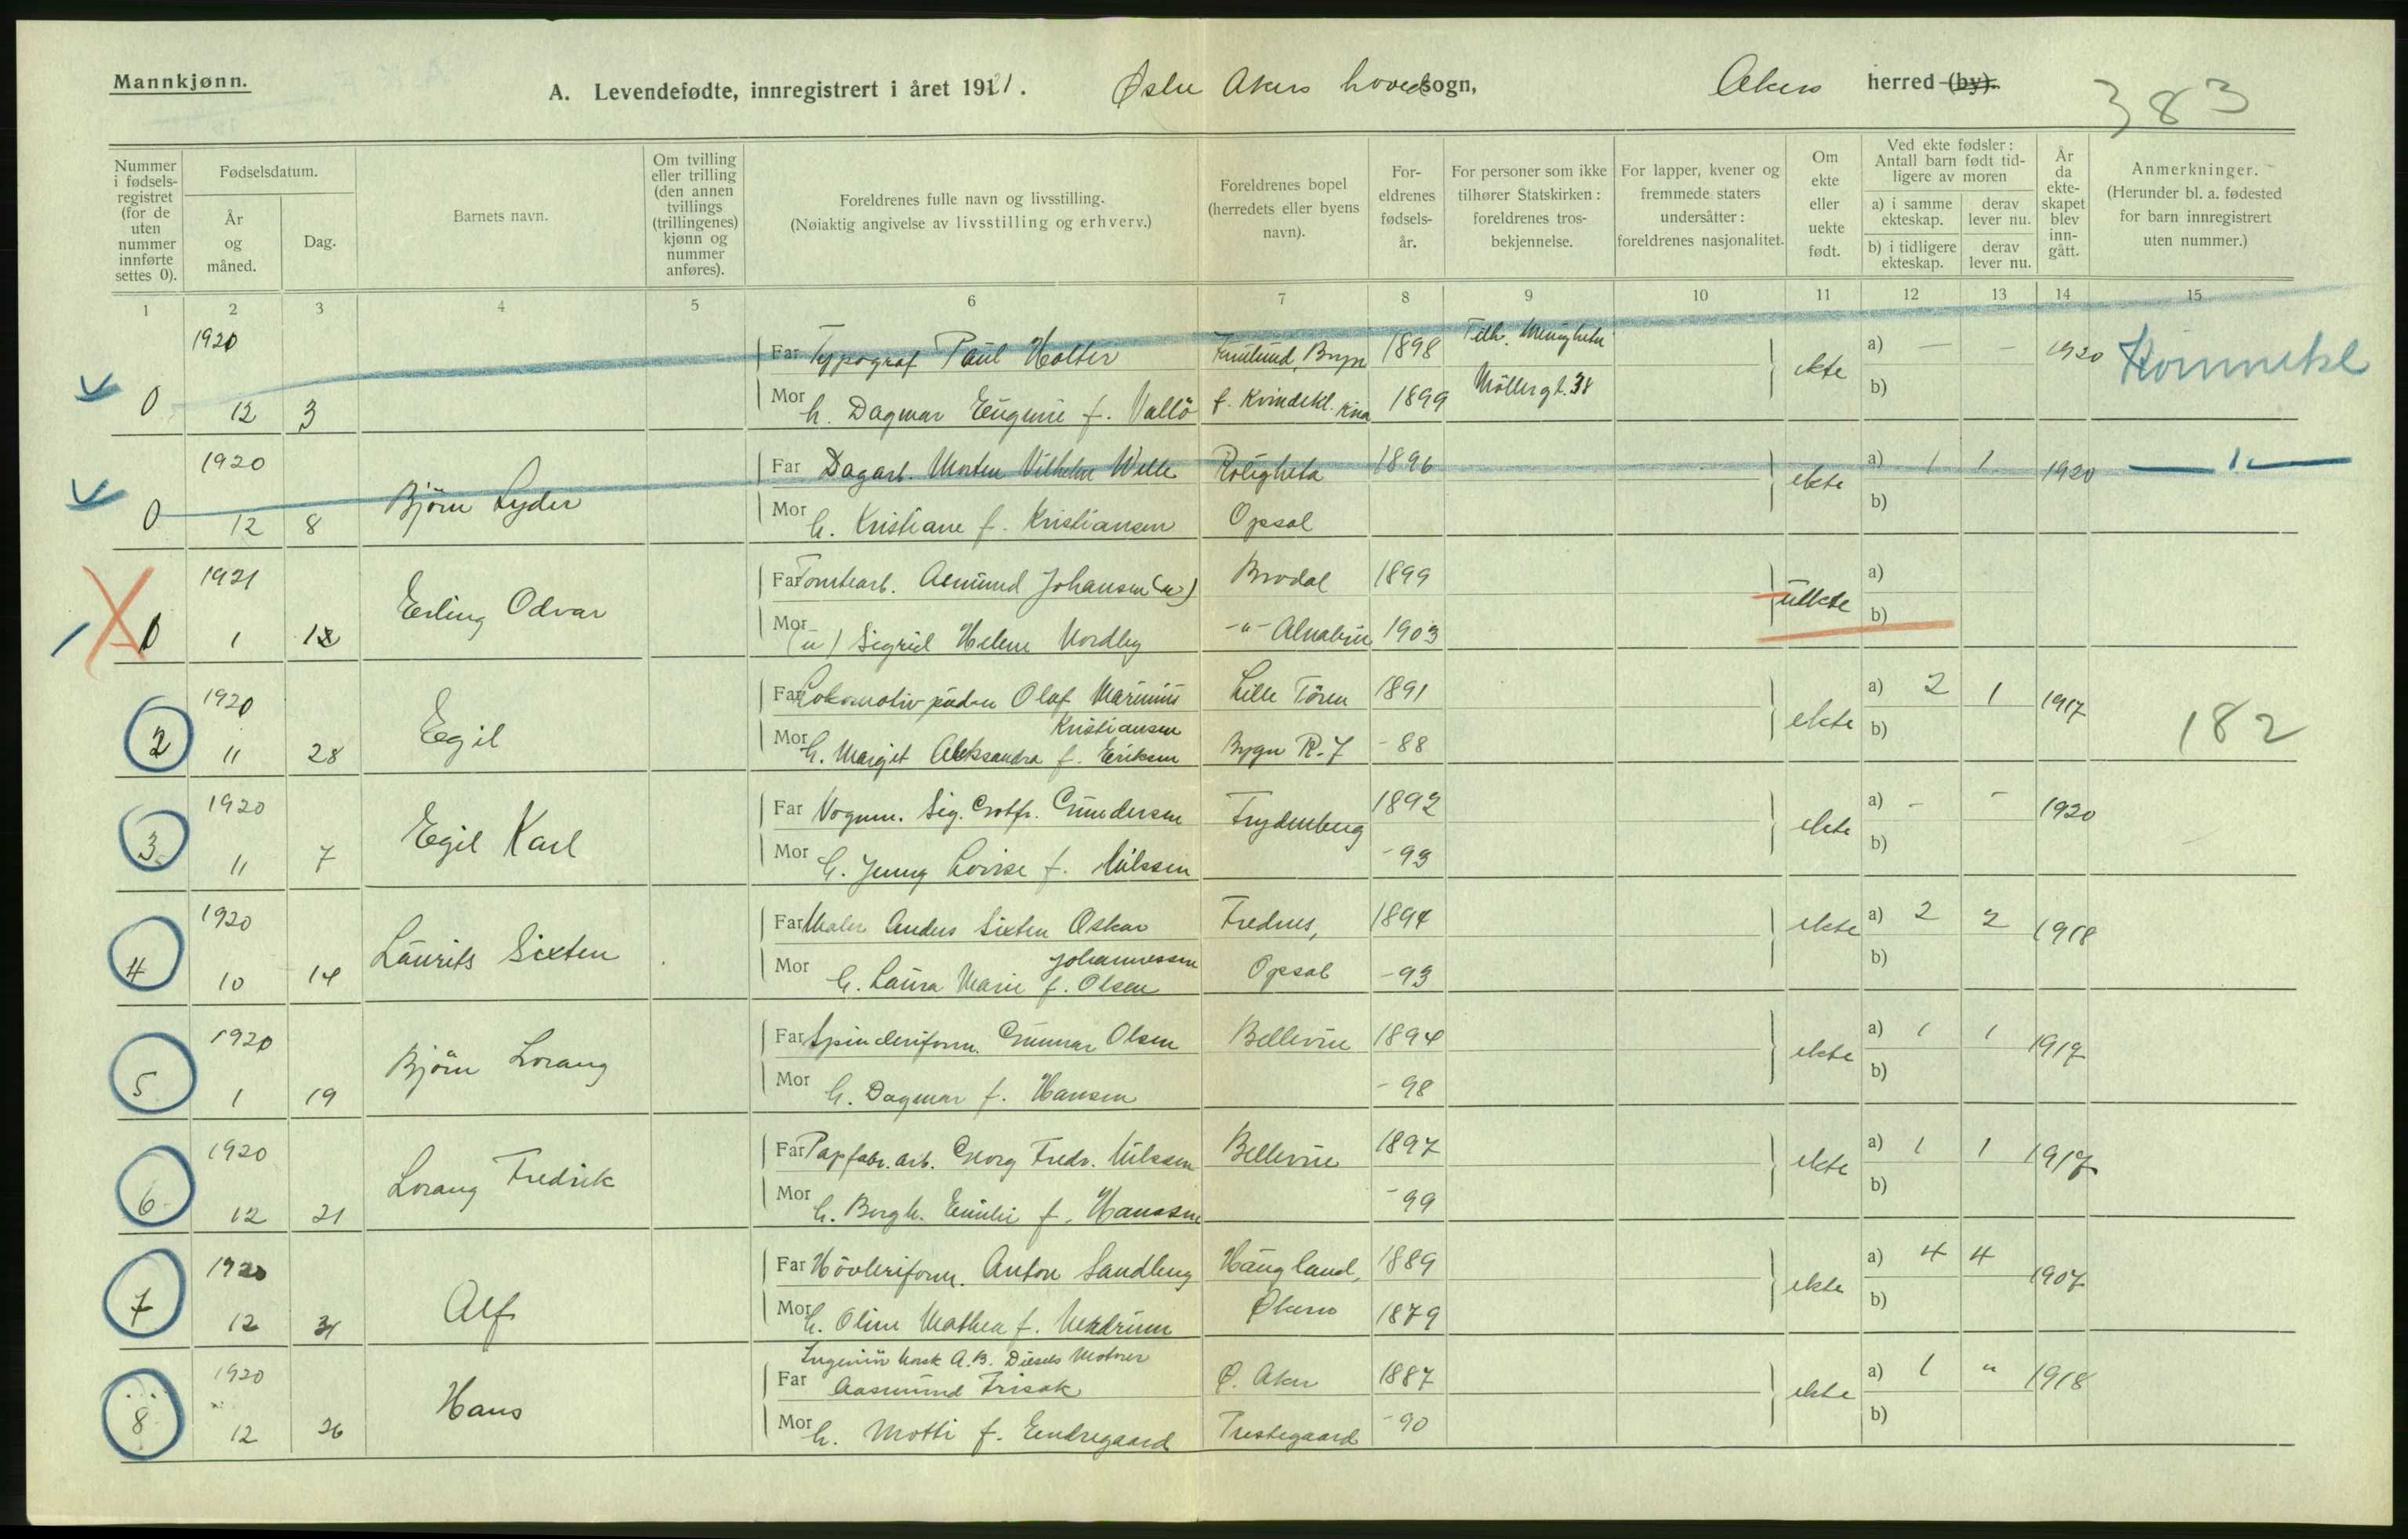 Mannkjønn.
A. Levendefødte, innregistrert i året 1921. Østre Akers hovedsogn, Akers herred (by).
383
Nummer i fødselsregistret (for de uten nummer innførte settes 0).
Fødselsdatum.
År og måned.
Dag.
Barnets navn.
Om tvilling eller trilling (den annen tvillings (trillingenes) kjønn og nummer anføres).
Foreldrenes fulle navn og livsstilling.
(Nøiaktig angivelse av livsstilling og erhverv.)
Foreldrenes bopel (herredets eller byens navn).
Foreldrenes fødselsår.
For personer som ikke tilhører Statskirken: foreldrenes trosbekjennelse.
For lapper, kvener og fremmede staters undersåtter: foreldrenes nasjonalitet.
Om ekte eller uekte født.
Ved ekte fødsler: Antall barn født tidligere av moren
a) i samme ekteskap.
derav lever nu.
b) i tidligere ekteskap.
derav lever nu.
År da ekteskapet blev inngått.
Anmerkninger.
(Herunder bl. a. fødested for barn innregistrert uten nummer.)
1 2 3 4 5 6 7 8 9 10 11 12 13 14 15
1920 Far Typograf Paul Holter Bryn 1898 Tilh. Menigheten ekte a) — — 1920
0 12 3 Mor h. Dagmar Eugenie f. Vallö f. Kvindekl. 1899 Möllergt. 38 b)
1920 Far Dagarb. Morten Vilhelm Welle Roligheta 1896 ekte a) 1 1 1920 — " —
0 12 8 Björn Lyder Mor h. Kristiane f. Kristiansen Opsal b)
1921 Far Tomtearb. Asmund Johansen (u) Brodal 1899 uekte a)
1 1 12 Erling Odvar Mor (u) Sigrid Helene Nordby -"- Alnabru 1903 b)
1920 Far Lokomotivpudser Olaf Marinius Kristiansen Lille Töien 1891 ekte a) 2 1 1917 182
2 11 28 Egil Mor h. Margit Aleksandra f. Eriksen -88 b)
1920 Far Vognm. Sig. Gotfr. Gundersen Frydenberg 1892 ekte a) - - 1920
3 11 7 Egil Karl Mor h. Jenny Lovise f. Nilssen -93 b)
1920 Far Maler Anders Sixten Oskar Johannessen Frednes, 1894 ekte a) 2 2 1918
4 10 14 Laurits Sixten Mor h. Laura Marie f. Olsen Opsal -93 b)
1920 Far Spinderiform. Gunnar Olsen Bellevue 1894 ekte a) 1 1 1917
5 1 19 Björn Lorang Mor h. Dagmar f. Hansen -98 b)
1920 Far Papfabr. arb. Georg Fredr. Nilssen Bellevue 1897 ekte a) 1 1 1917
6 12 21 Lorang Fredrik Mor h. Borgh. Emilie f. Hanssen -99 b)
1920 Far Hövleriform. Anton Sandberg Haugland, 1889 ekte a) 4 4 1907
7 12 31 Alf Mor h. Oline Mathea f. Økern 1879 b)
Ingeniör Norsk A.B. Diesels Motorer
1920 Far Aasmund Frisak Ø. Aker 1887 ekte a) 1 " 1918
8 12 26 Hans Mor h. Motti f. Endregaard Prestegaard -90 b)